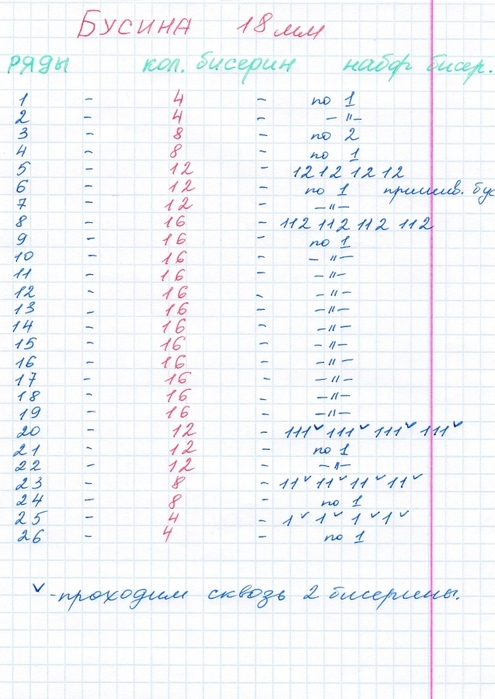 Бусина 18 мм
ряды кол. бисерин набор бисер.
1 - 4 - по 1
2 - 4 - -"-
3 - 8 - по 2
4 - 8 - по 1
5 - 12 - 12 12 12 12
6 - 12 - по 1 примерив. бус
7 - 12 - -"-
8 - 16 - 112 112 112 112
9 - 16 - по 1
10 - 16 - -"-
11 - 16 - -"-
12 - 16 - -"-
13 - 16 - -"-
14 - 16 - -"-
15 - 16 - -"-
16 - 16 - -"-
17 - 16 - -"-
18 - 16 - -"-
19 - 16 - -"-
20 - 12 - 111✓ 111✓ 111✓ 111✓
21 - 12 - по 1
22 - 12 - -"-
23 - 8 - 11✓ 11✓ 11✓ 11✓
24 - 8 - по 1
25 - 4 - 1✓ 1✓ 1✓ 1✓
26 - 4 - по 1
✓ -проходим сквозь 2 бисерины.